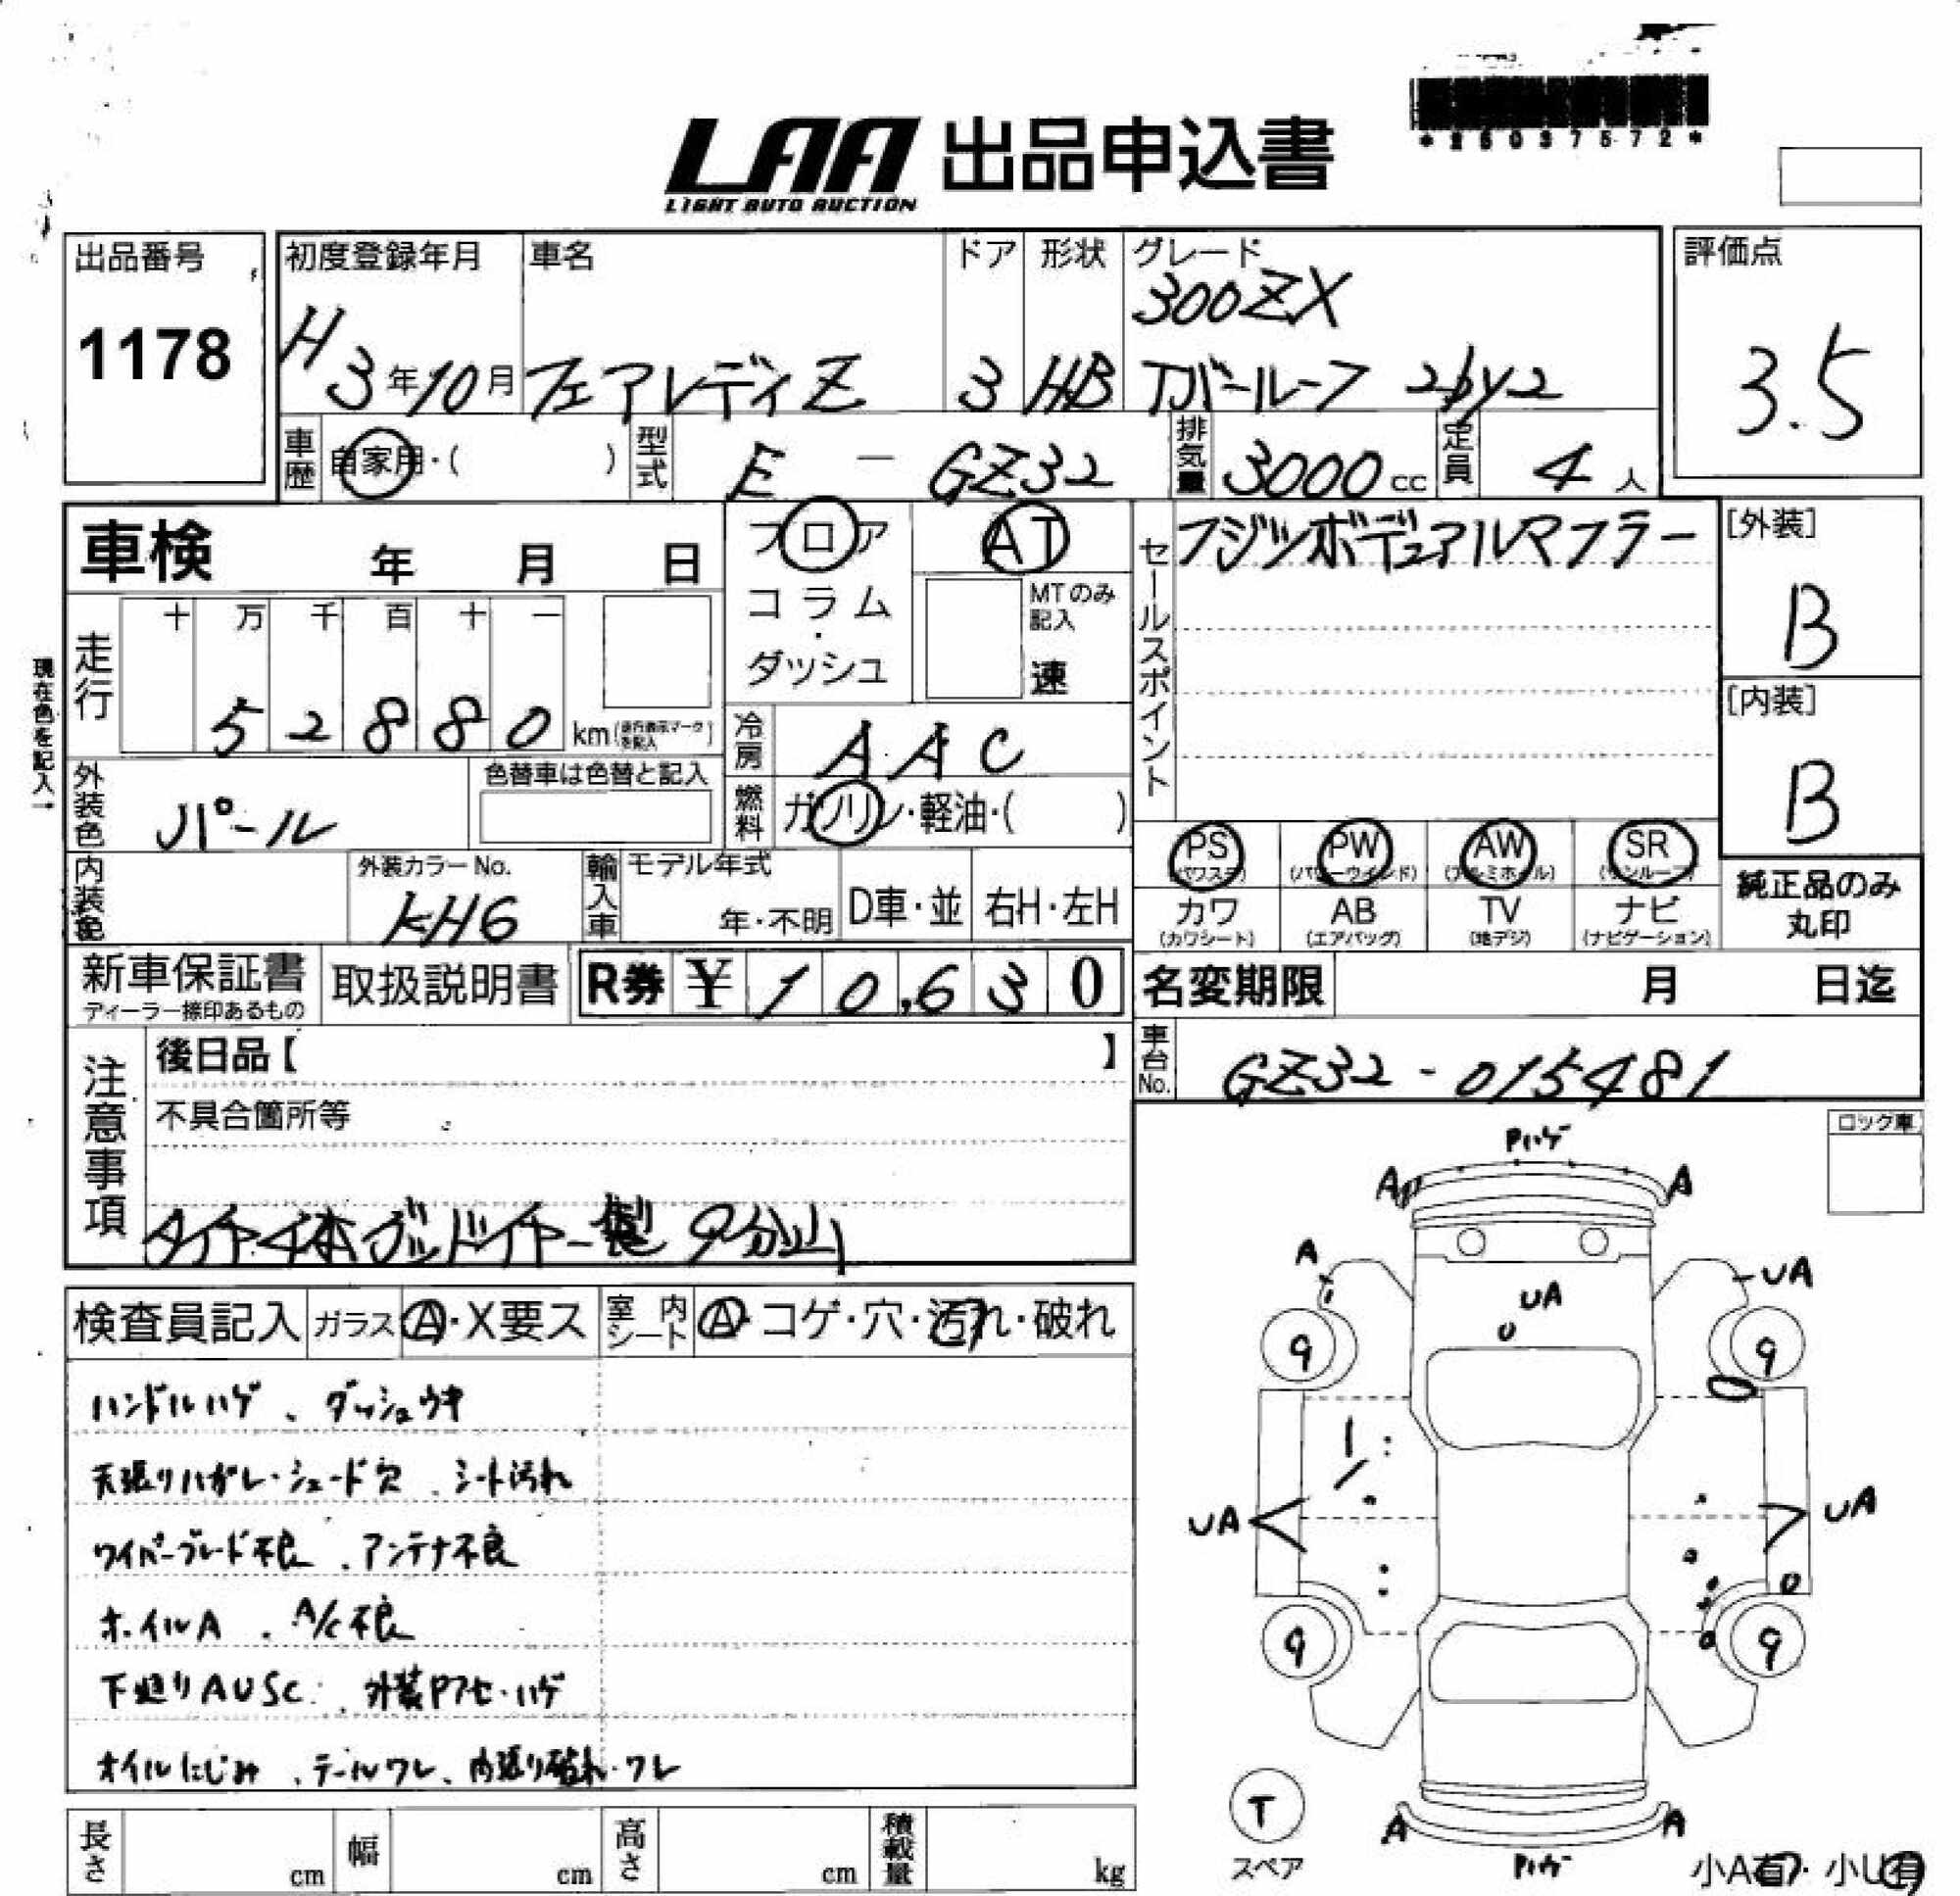 *25037572*
LAA 出品申込書
LIGHT AUTO AUCTION
出品番号
1178
初度登録年月
H3年10月
車名
フェアレディZ
ドア
3
形状
HB
グレード
300ZX
Tバールーフ 2by2
評価点
3.5
車歴 自家用・( )
型式 E - GZ32
排気量 3000cc
定員 4人
車検 年 月 日
フロア
コラム
・
ダッシュ
AT
MTのみ
記入
速
セールスポイント
フジツボデュアルマフラー
[外装]
B
[内装]
B
現在色を記入→
走行
十 万 千 百 十 一
5 2 8 8 0 km
冷房 AAC
燃料 ガソリン・軽油・( )
外装色 パール
色替車は色替と記入
内装色
外装カラーNo.
KH6
輸入車
モデル年式
年・不明
D車・並
右H・左H
PS (パワステ)
PW (パワーウインド)
AW (アルミホイル)
SR (サンルーフ)
カワ (カワシート)
AB (エアバッグ)
TV (地デジ)
ナビ (ナビゲーション)
純正品のみ
丸印
新車保証書
ディーラー捺印あるもの
取扱説明書
R券 ¥10,630
名変期限 月 日迄
車台No. GZ32-015481
注意事項
後日品【 】
不具合箇所等
タイヤ4本グッドイヤー製 9分山
ロック車
検査員記入
ガラス A・X要ス
室内シート A・コゲ・穴・汚れ・破れ
ハンドルハゲ、ダッシュウキ
天張りハガレ・シェード穴、シート汚れ
ワイパーブレード不良、アンテナ不良
ホイルA、A/C不良
下廻りAUSC、外装Pアセ・ハゲ
オイルにじみ、テールワレ、内張り破れ・ワレ
Pハゲ
A A
A UA
UA
9 9
UA UA
9 9
T
スペア
A A
Pハゲ
小A有・小U有
長さ cm
幅 cm
高さ cm
積載量 kg